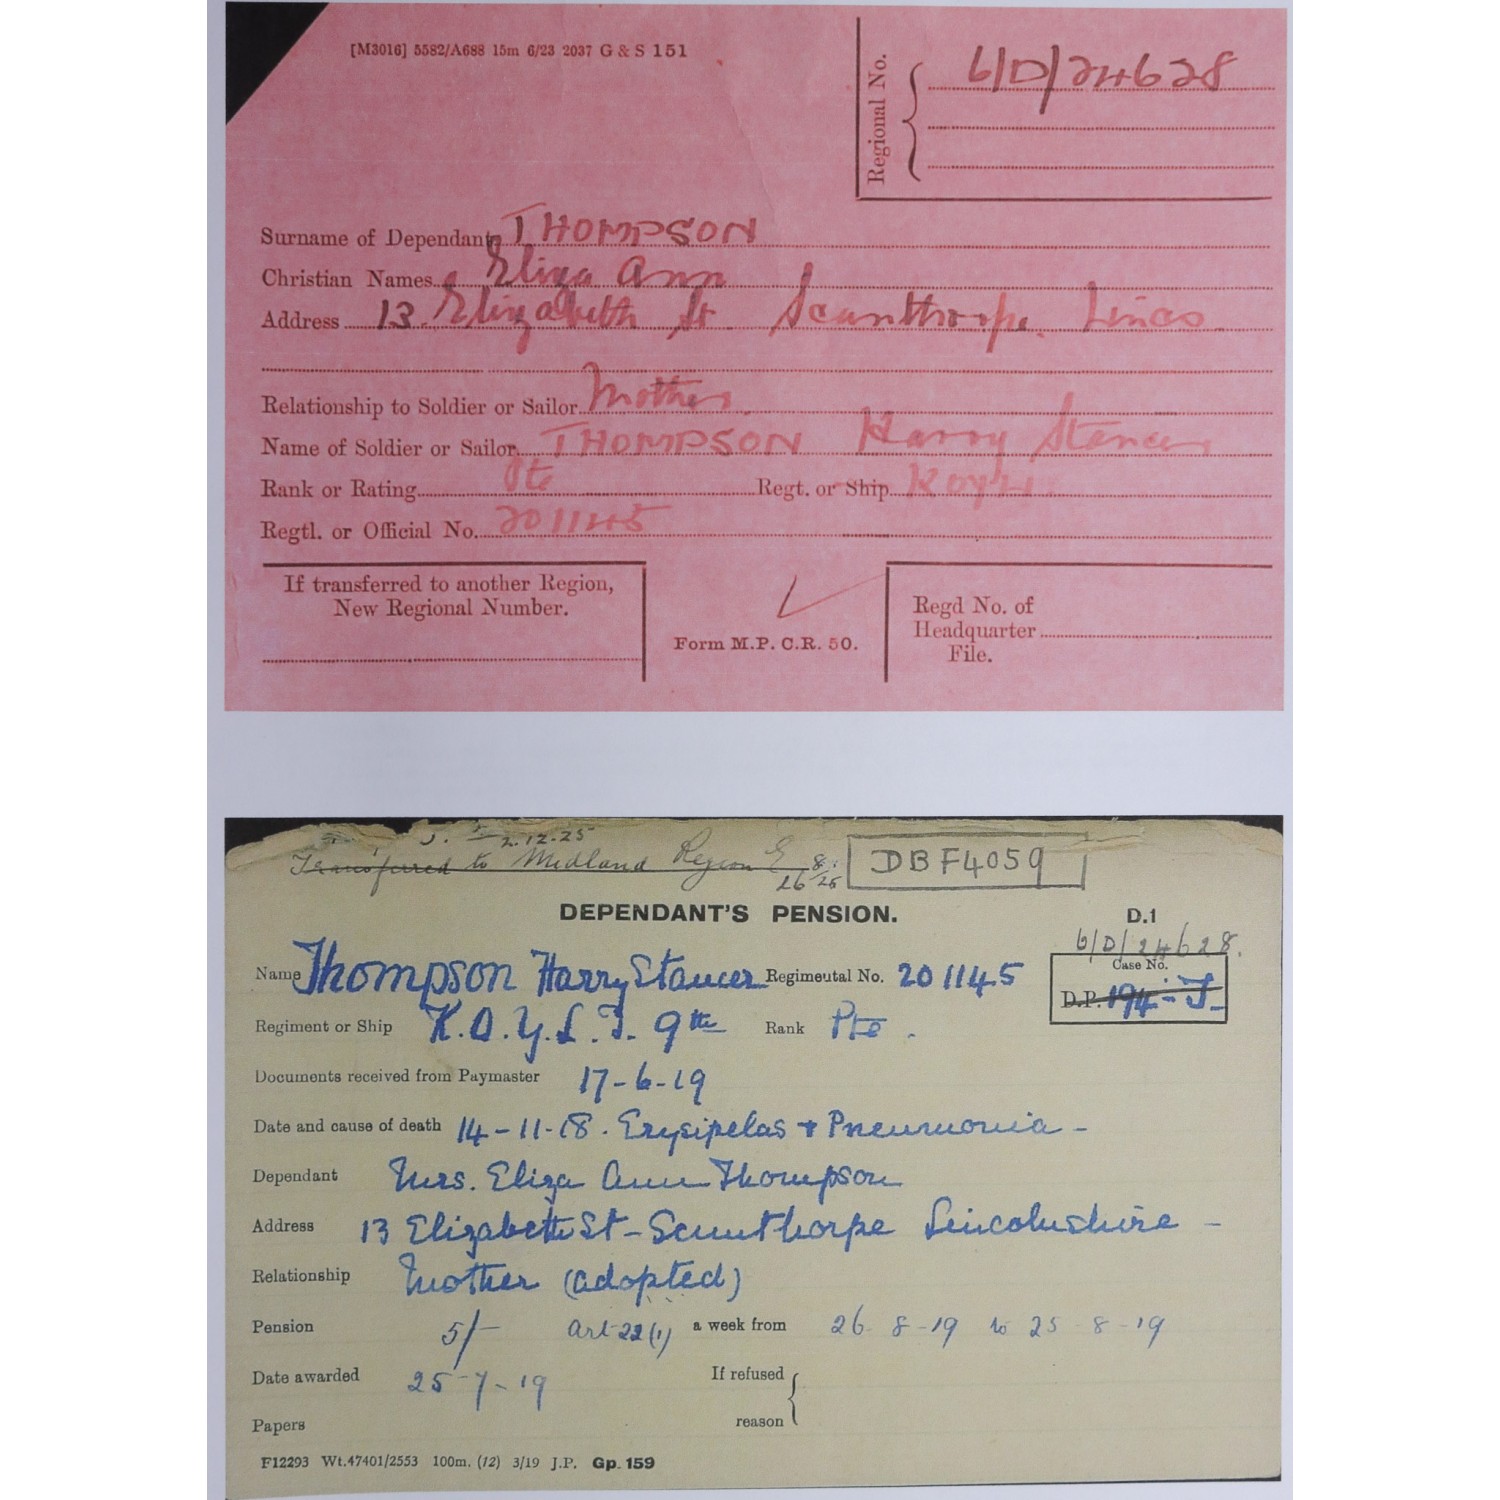 [M3016] 5582/A688 15m 6/23 2037 G & S 151
Regional No. 6/D/24628
Surname of Dependant THOMPSON
Christian Names Eliza Ann
Address 13 Elizabeth St Scunthorpe. Lincs.
Relationship to Soldier or Sailor Mother.
Name of Soldier or Sailor THOMPSON Harry Stancer
Rank or Rating Pte Regt. or Ship KOYLI
Regtl. or Official No. 201145
If transferred to another Region,
New Regional Number.
Form M.P.C.R. 50.
Regd No. of
Headquarter
File.
2.12.25
Transferred to Midland Region E 26 8/25
DBF4059
DEPENDANT'S PENSION. D.1
6/D/24628.
Name Thompson Harry Stancer Regimental No. 201145
Case No.
D.P. 194 - T
Regiment or Ship K.O.Y.L.I. 9th Rank Pte.
Documents received from Paymaster 17-6-19
Date and cause of death 14-11-18. Erysipelas + Pneumonia -
Dependant Mrs. Eliza Ann Thompson
Address 13 Elizabeth St - Scunthorpe Lincolnshire -
Relationship Mother (adopted)
Pension 5/- Art 22(1) a week from 26-8-19 to 25-8-19
Date awarded 25-7-19 If refused
reason
Papers
F12293 Wt.47401/2553 100m. (12) 3/19 J.P. Gp. 159